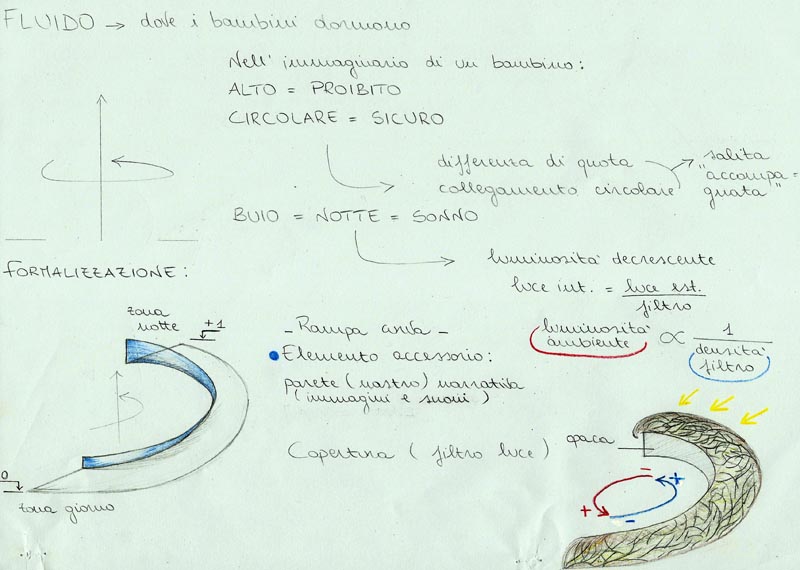 FLUIDO → dove i bambini dormono
Nell' immaginario di un bambino:
ALTO = PROIBITO
CIRCOLARE = SICURO
differenza di quota
collegamento circolare
salita
"accompa=
gnata"
BUIO = NOTTE = SONNO
luminosità decrescente
luce int. = luce est.
filtro
FORMALIZZAZIONE:
zona
notte
+1
- Rampa curva -
Elemento accessorio:
parete (nastro) narrativa
(immagini e suoni)
luminosità
ambiente
∝
1
densità
filtro
Copertura (filtro luce)
opaca
0
zona giorno
- +
+ -